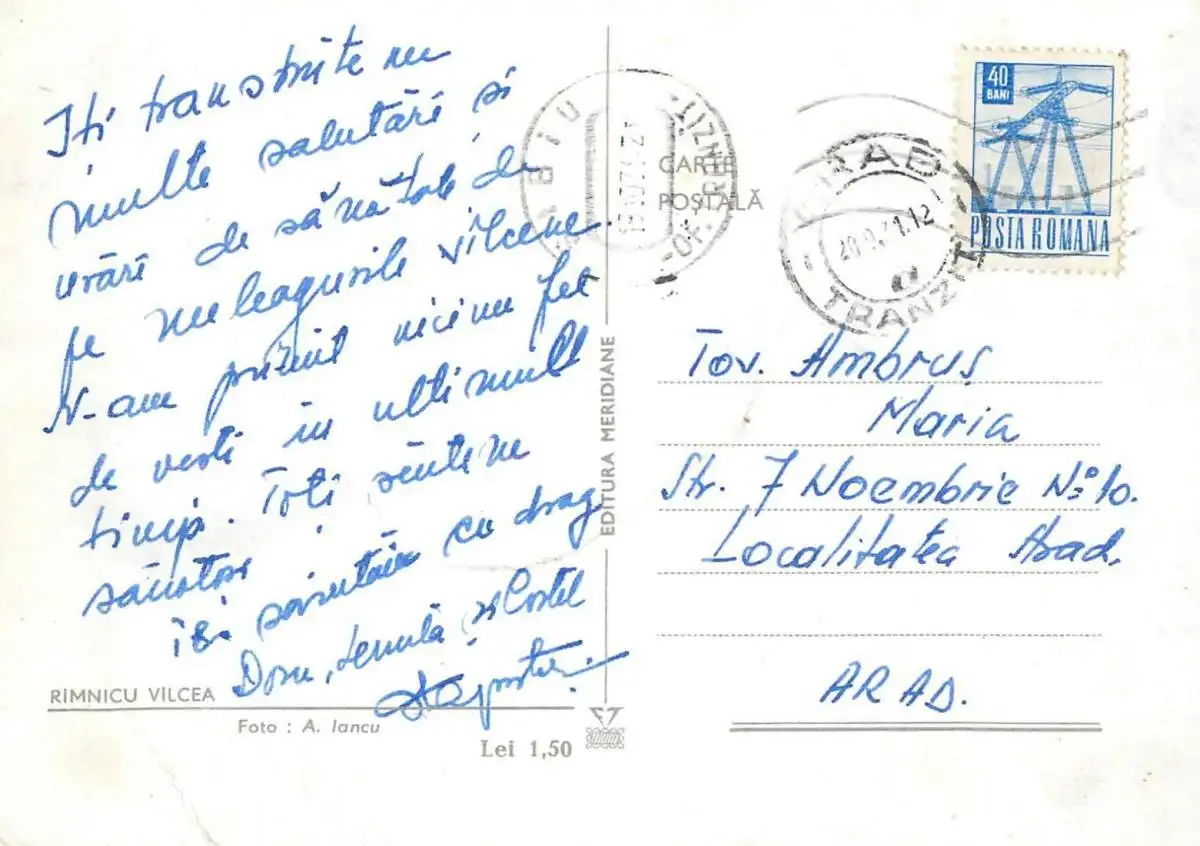 Iți transmitem
multe salutări și
urări de sănătate de
pe meleagurile vîlcene.
N-am primit nici un fel
de vesti în ultimul
timp. Toți sîntem
sănătoși
Iți sărutăm cu drag
Doru, Lenuță și Costel
RIMNICU VÎLCEA
Foto : A. Iancu
Lei 1,50
EDITURA MERIDIANE
CARTE
POSTALĂ
SIBIU
-OF. TRANZIT-
ARAD
20.9.71.12
TRANZIT
40
BANI
POSTA ROMANA
Tov. Ambruș
Maria
Str. 7 Noembrie No 10.
Localitatea Arad.
ARAD.